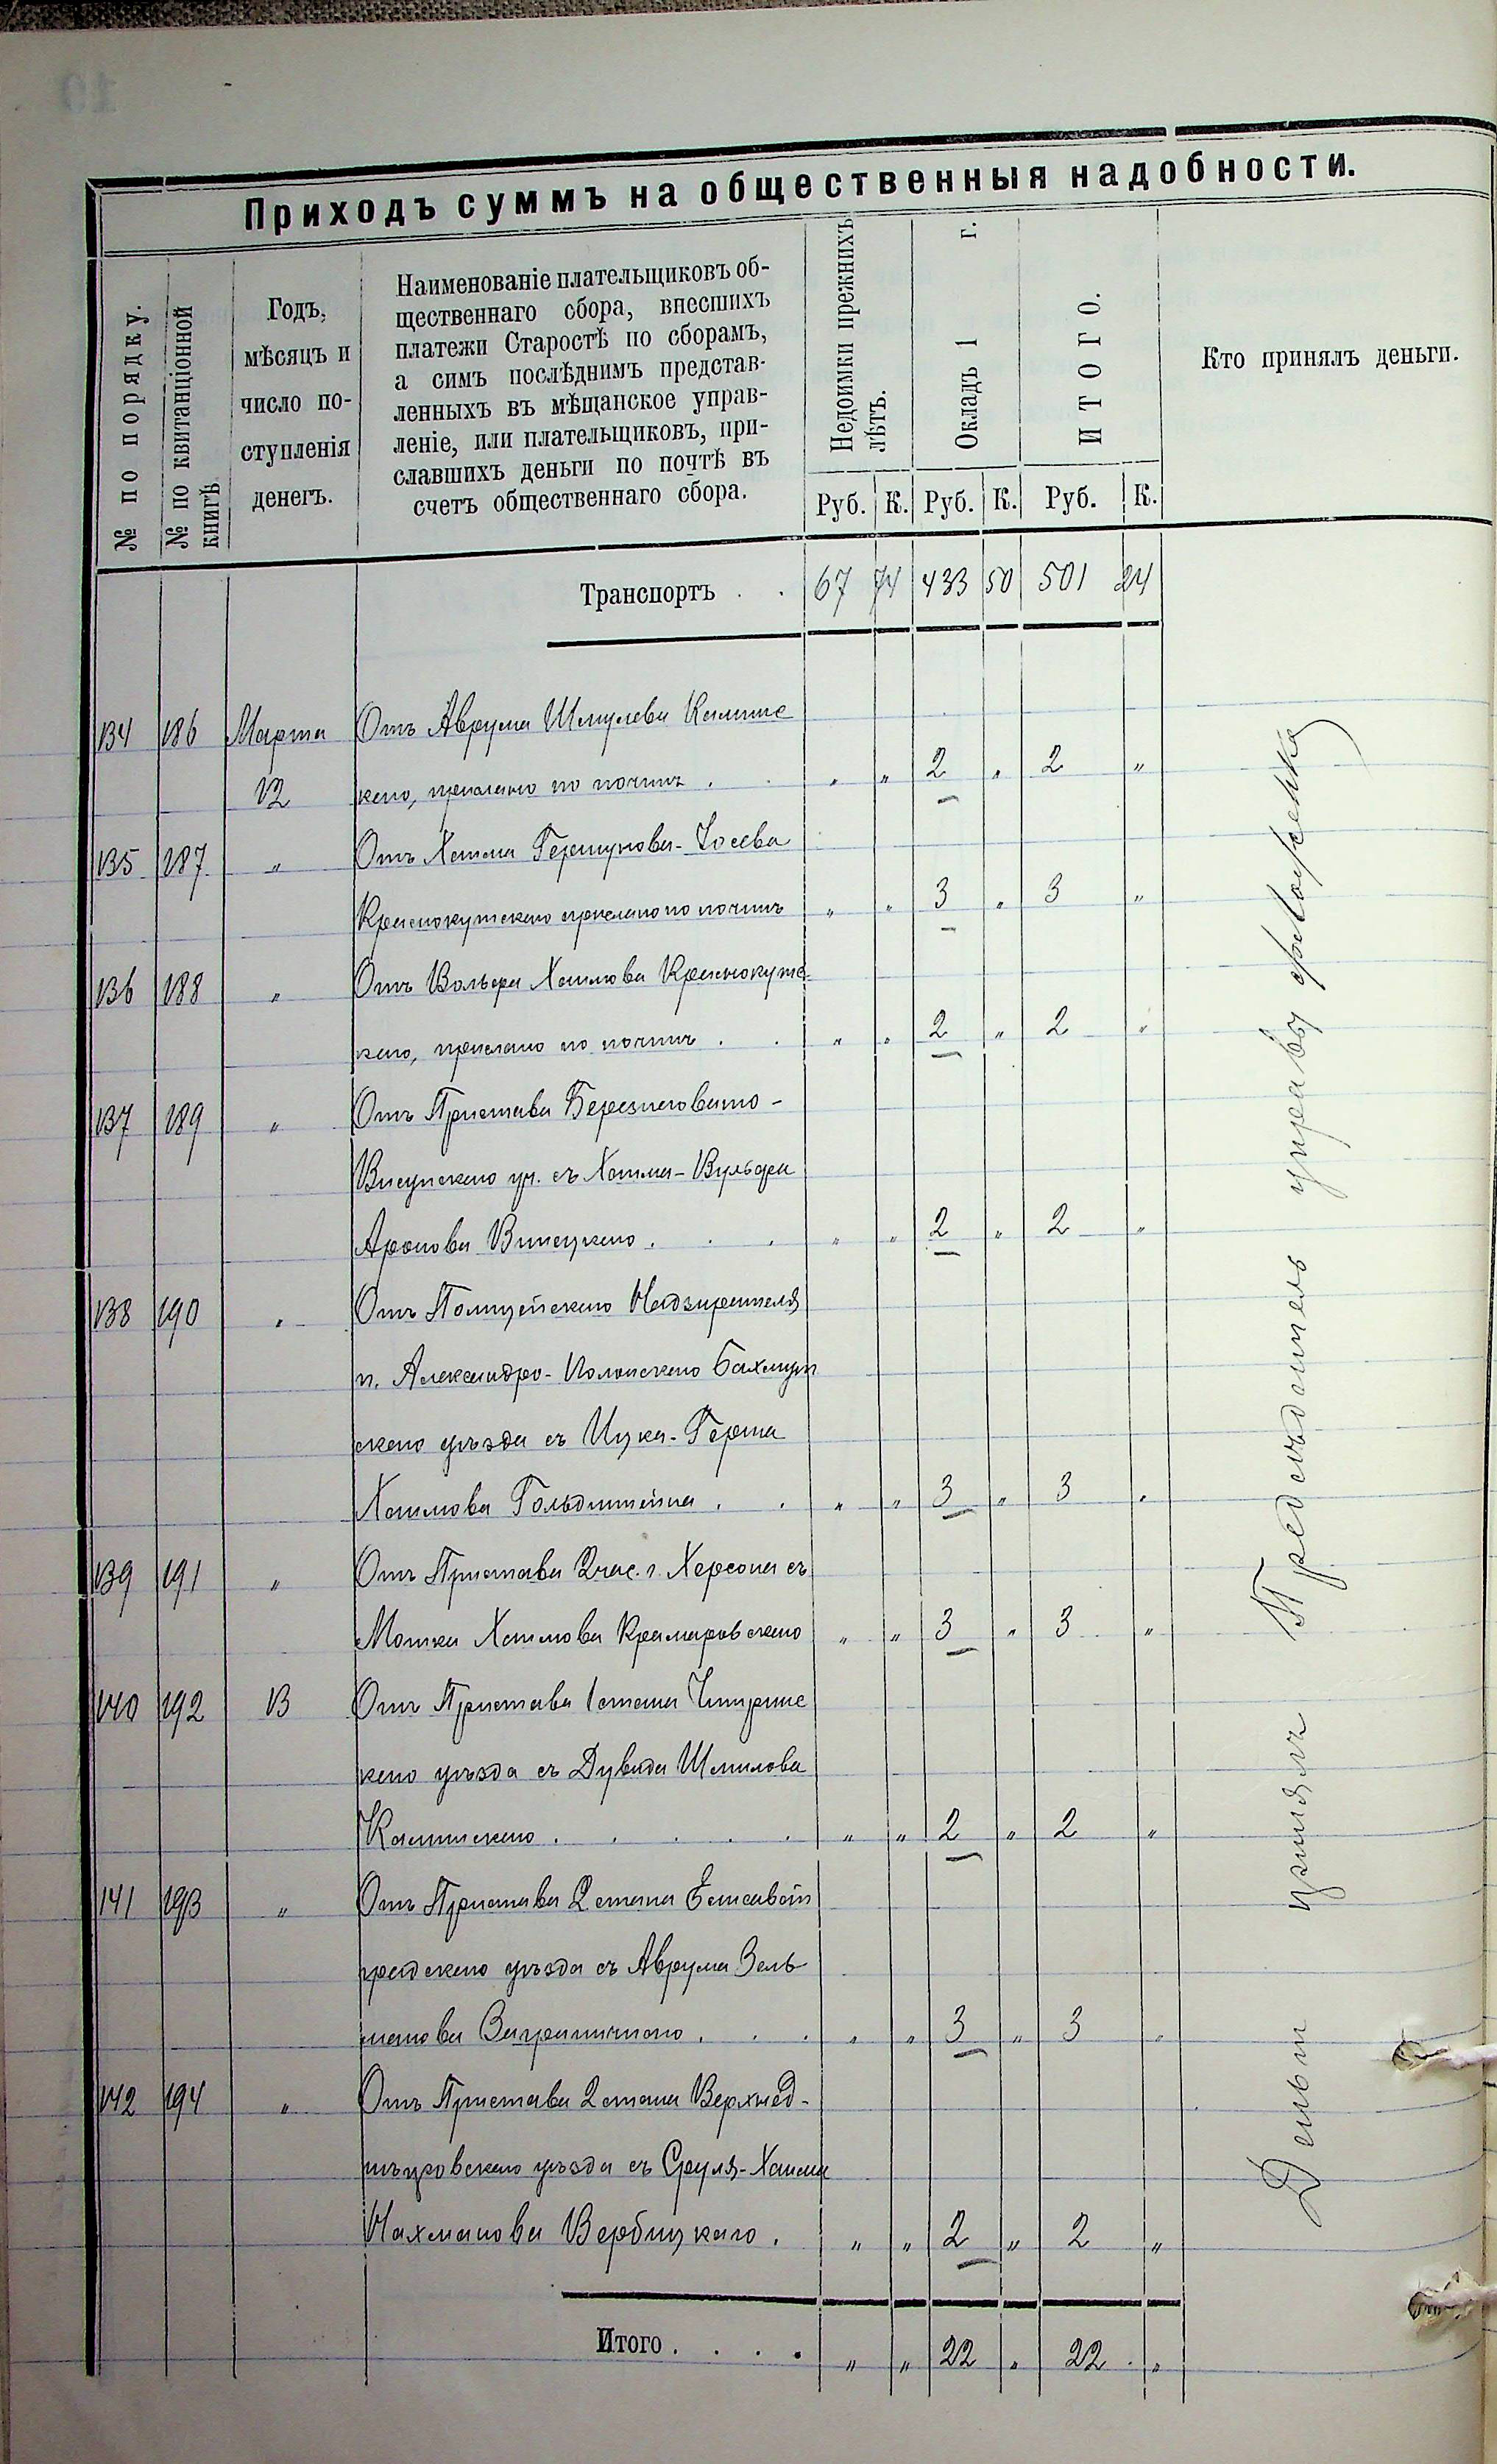 Приходъ суммъ на общественныя надобности.
№ по порядку.
№ по квитанціонной
книгѣ.
Годъ,
мѣсяцъ и
число по-
ступленія
денегъ.
Наименованіе плательщиковъ об-
щественнаго сбора, внесшихъ
платежи Старостѣ по сборамъ,
а симъ послѣднимъ представ-
ленныхъ въ мѣщанское управ-
леніе, или плательщиковъ, при-
славшихъ деньги по почтѣ въ
счетъ общественнаго сбора.
Недоимки прежнихъ
лѣтъ.
Окладъ 1 г.
ИТОГО.
Кто принялъ деньги.
Руб. К. Руб. К. Руб. К.
Транспортъ . . 67 74 433 50 501 24
134 186 Марта Отъ Аврума Шмулева
12 каго, прислано по почтѣ . . " " 2 " 2 "
135 187 " Отъ Хаима Гершунова-Іосева
Краснокутскаго прислано по почтѣ " " 3 " 3 "
136 188 " Отъ Вольфа Хаимова Краснокутс-
каго, прислано по почтѣ . . " " 2 " 2 "
137 189 " Отъ Пристава Березнеговато-
Висунскаго уч. съ Хаима-Вульфа
Аронова Винецкаго . . . " " 2 " 2 "
138 190 " Отъ Полицейскаго Надзирателя
п. Александро- Бахмут
скаго уѣзда съ Ицка-Герша
Хаимова Гольдштейна . . " " 3 " 3 "
139 191 " Отъ Пристава 2 час. г. Херсона съ
Мошки Хаимова Крамаровскаго " " 3 " 3 "
140 192 13 Отъ Пристава 1 стана Чигринс
каго уѣзда съ Дувида Шмилова
. . . . . " " 2 " 2 "
141 193 " Отъ Пристава 2 стана Елисавет
градскаго уѣзда съ Аврума Зель
манова Заграничнаго . . . " " 3 " 3 "
142 194 " Отъ Пристава 2 стана Верхнед-
нѣпровскаго уѣзда съ Сруля-Хаима
Нахманова Вербицкаго . " " 2 " 2 "
Итого . . . . " " 22 " 22 "
Деньги принялъ Предсѣдатель управы